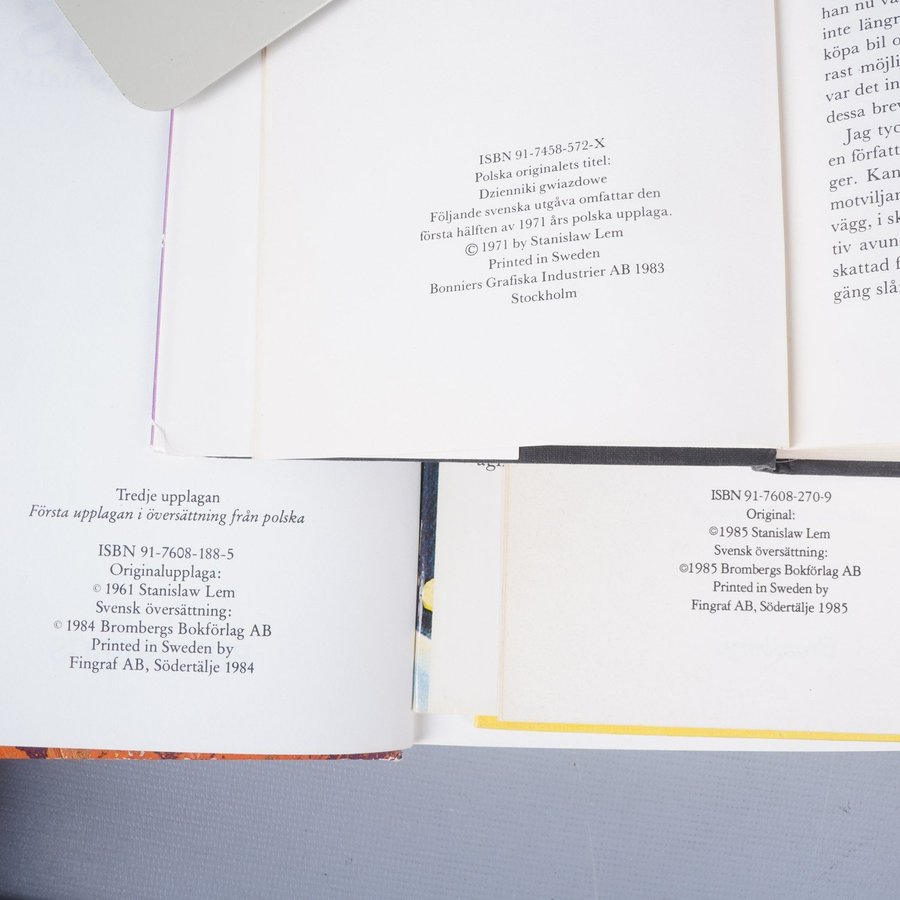 ISBN 91-7458-572-X
Polska originalets titel:
Dzienniki gwiazdowe
Följande svenska utgåva omfattar den
första hälften av 1971 års polska upplaga.
© 1971 by Stanisław Lem
Printed in Sweden
Bonniers Grafiska Industrier AB 1983
Stockholm
han nu
inte längr
köpa bil
rast möjli
var det in
dessa brev
Jag tyc
en författ
ger. Kan
motviljan
vägg, i sk
tiv avun
skattad f
gäng slå
Tredje upplagan
Första upplagan i översättning från polska
ISBN 91-7608-188-5
Originalupplaga:
© 1961 Stanislaw Lem
Svensk översättning:
© 1984 Brombergs Bokförlag AB
Printed in Sweden by
Fingraf AB, Södertälje 1984
ISBN 91-7608-270-9
Original:
©1985 Stanislaw Lem
Svensk översättning:
©1985 Brombergs Bokförlag AB
Printed in Sweden by
Fingraf AB, Södertälje 1985